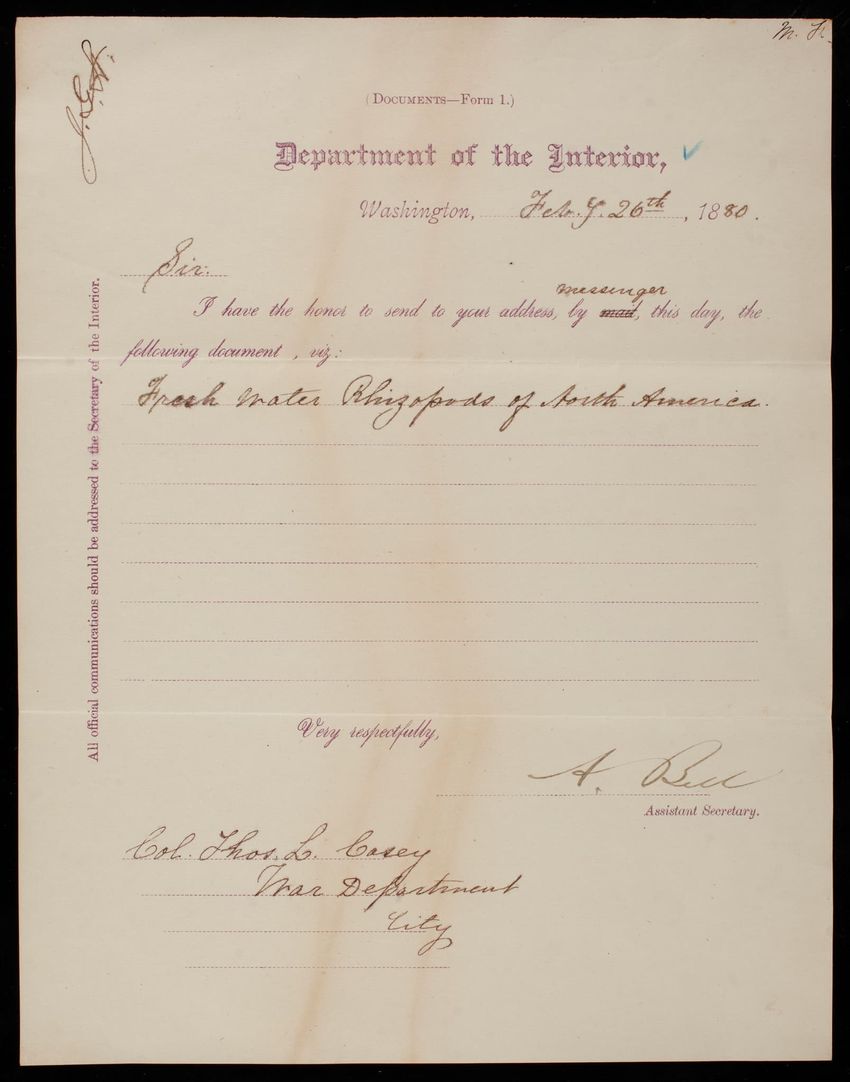 M. H.
J. G. H.
(DOCUMENTS—Form 1.)
Department of the Interior,
Washington, Feb.y. 26th, 1880.
Sir:
messenger
I have the honor to send to your address, by mail, this day, the
following document , viz:
Fresh Water Rhizopods of North America.
Very respectfully,
A. Bell
Assistant Secretary.
Col. Thos. L. Casey
War Department
City
All official communications should be addressed to the Secretary of the Interior.